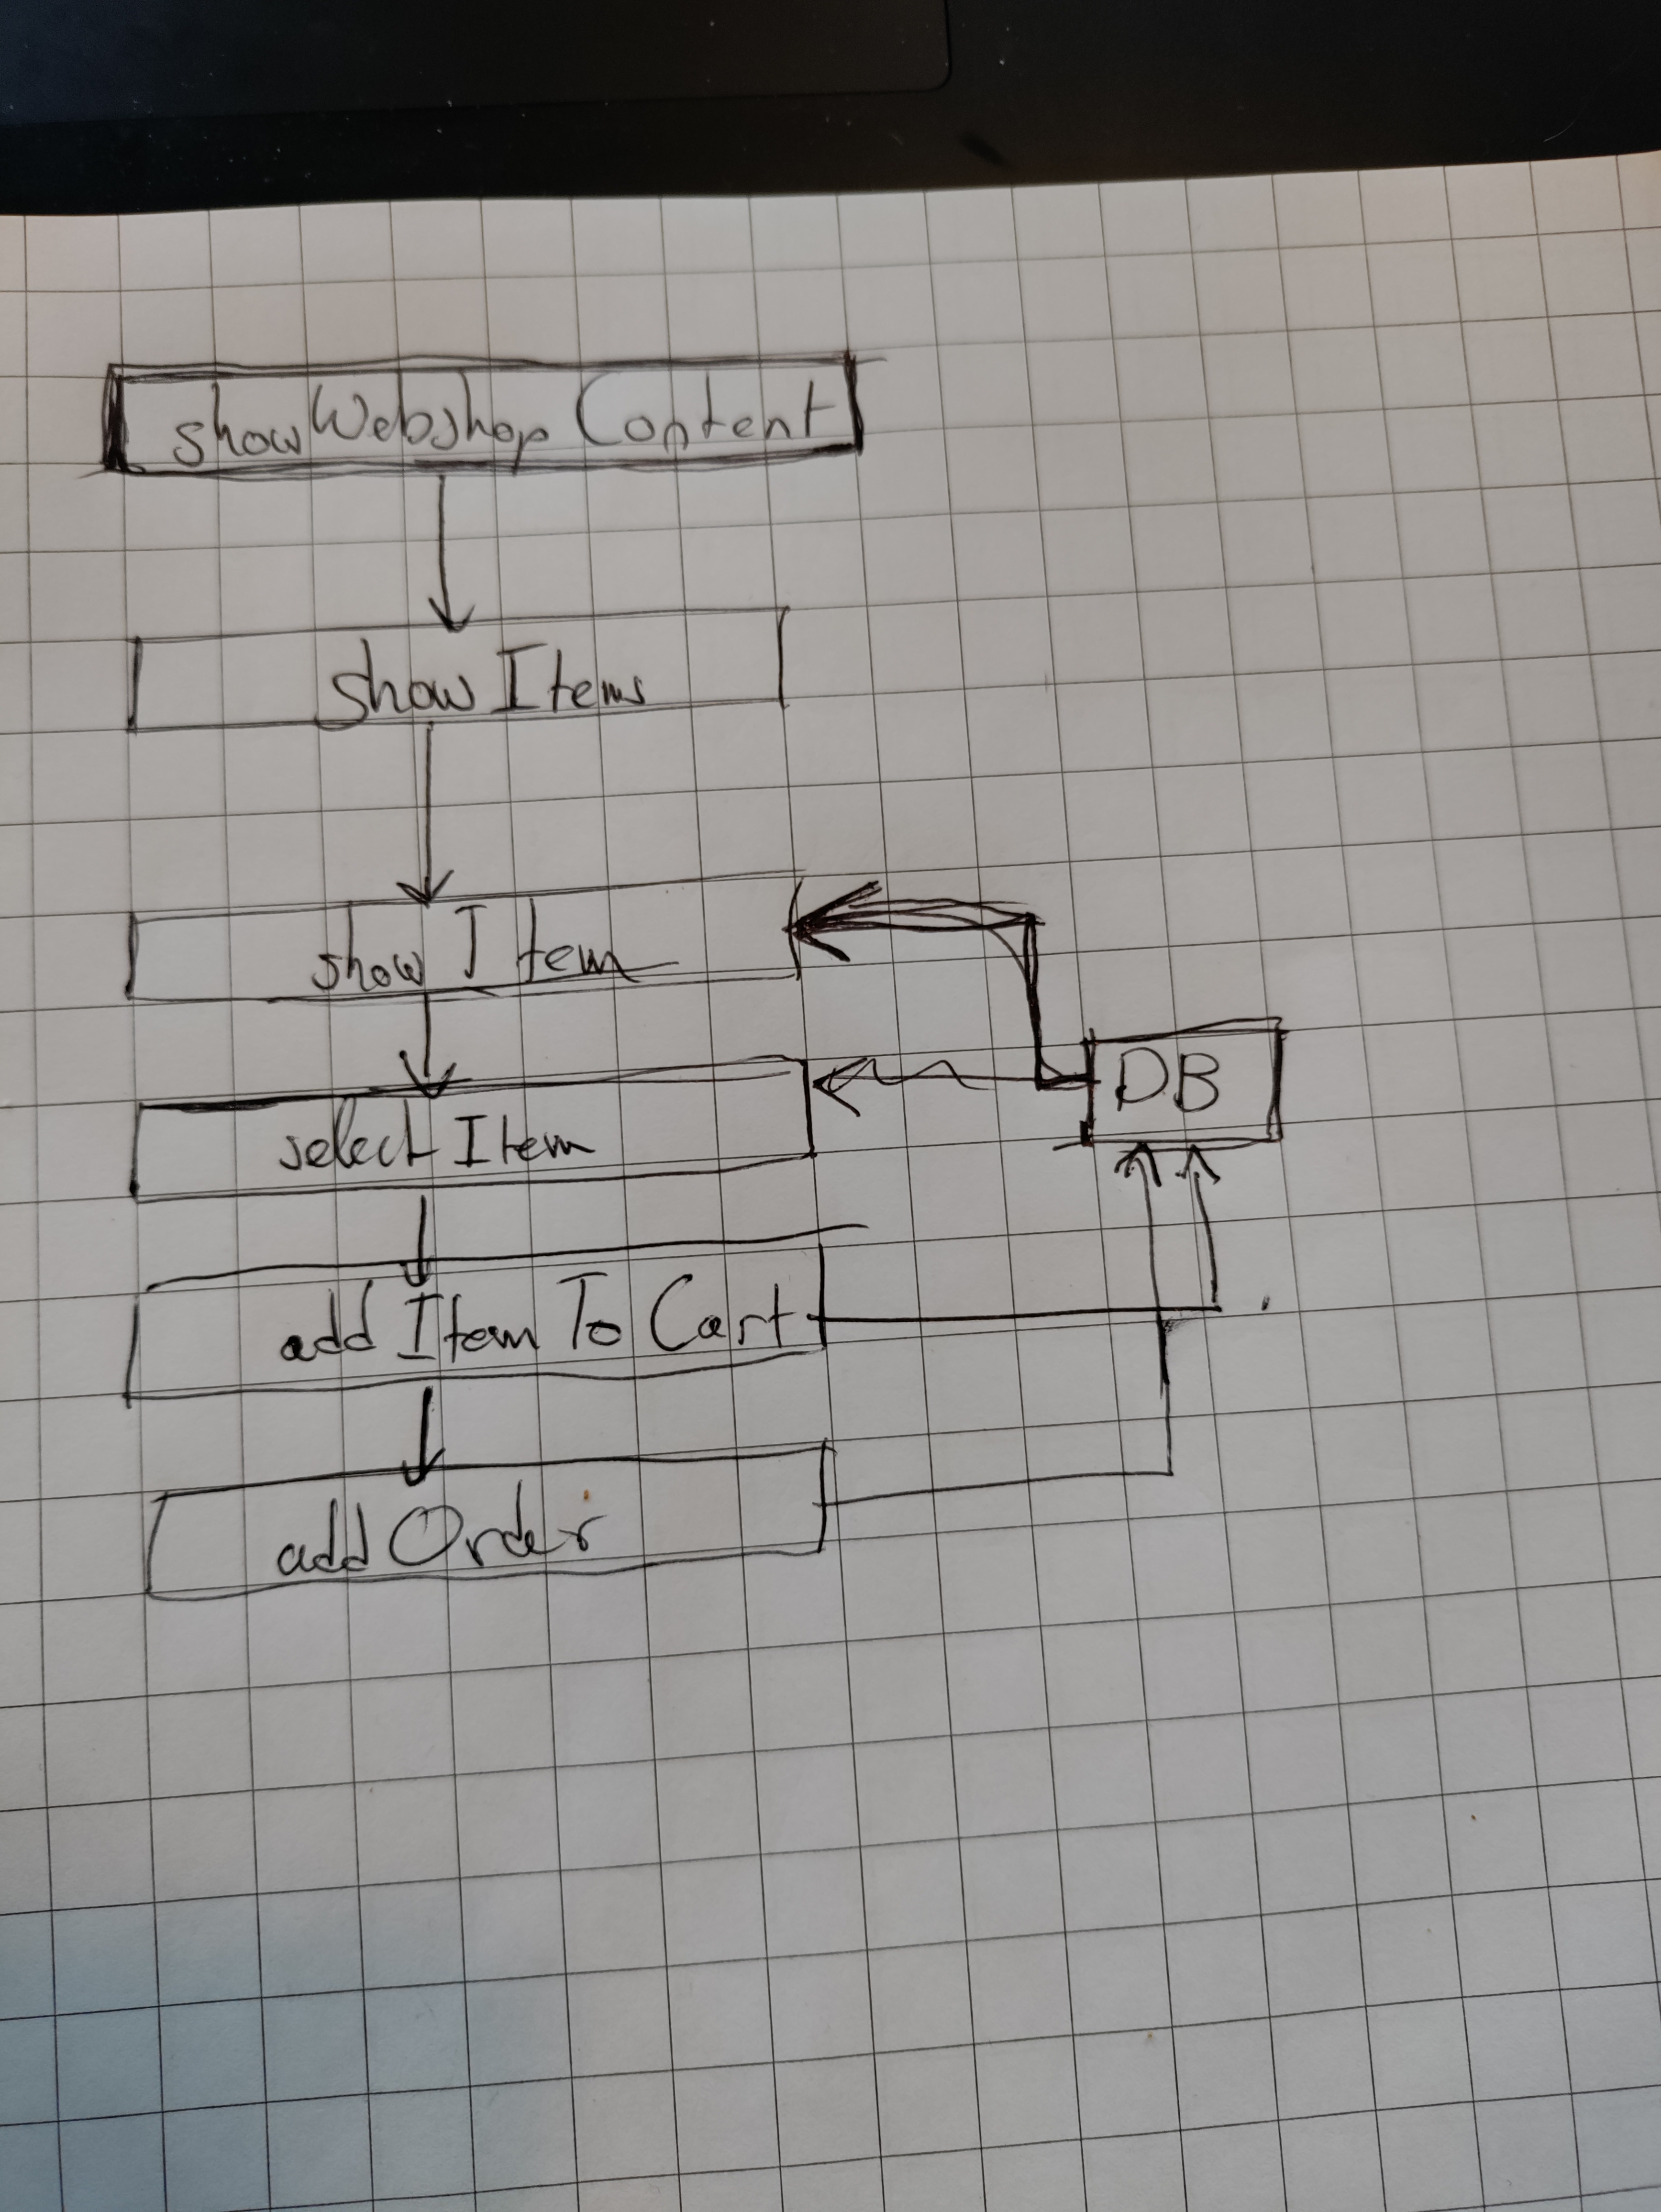 showWebshopContent
showItems
showItem
selectItem
DB
addItemToCart
addOrder